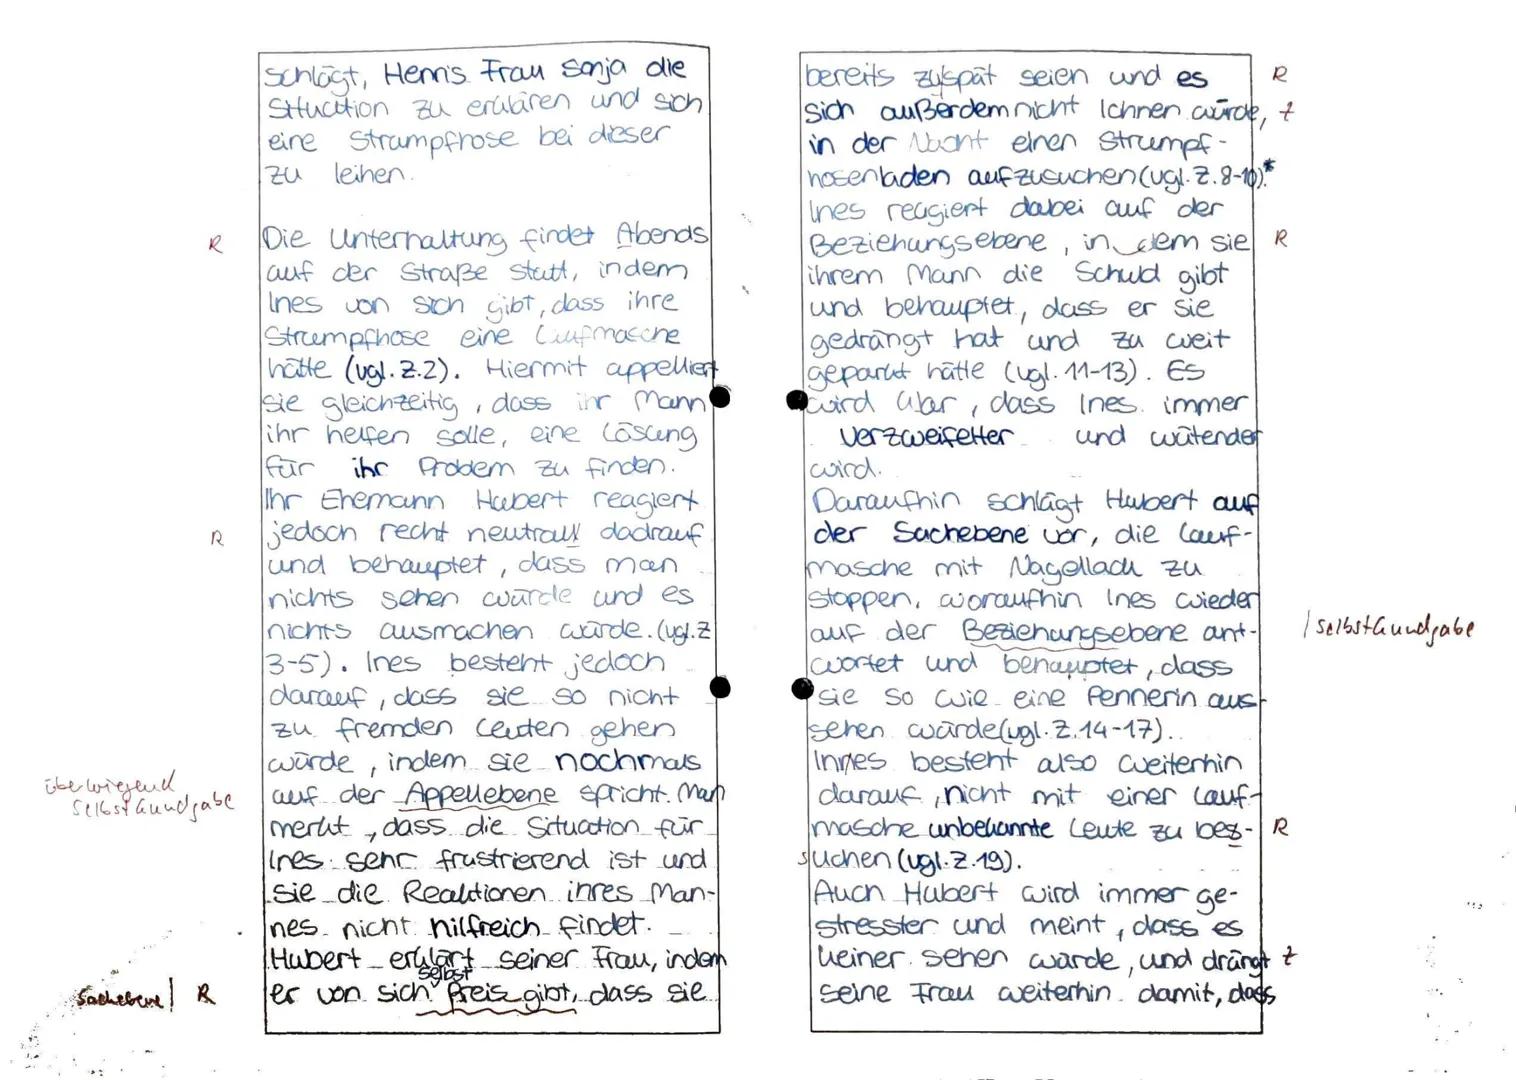 schlägt, Henris Frau Sonja die
Situation zu erklären und sich
eine Strumpfhose bei dieser
zu leihen.
R Die Unterhaltung findet Abends
auf der Straße statt, indem
Ines von sich gibt, dass ihre
Strumpfhose eine Laufmasche
hätte (vgl. Z.2). Hiermit appelliert
sie gleichzeitig, dass ihr Mann
ihr helfen solle, eine Lösung
für ihr Problem zu finden.
Ihr Ehemann Hubert reagiert
R jedoch recht neutral dadrauf
und behauptet, dass man
nichts sehen würde und es
nichts ausmachen würde. (vgl. Z
3-5). Ines besteht jedoch
darauf, dass sie so nicht
zu fremden Leuten gehen
würde, indem sie nochmals
überwiegend
Selbstkundgabe
auf der Appellebene spricht. Man
merkt, dass die Situation für
Ines sehr frustrierend ist und
sie die Reaktionen ihres Man-
nes nicht hilfreich findet.
Hubert erklärt seiner Frau, indem
selbst
Sachebene | R er von sich Preis gibt, dass sie
bereits zu spät seien und es R
sich außerdem nicht lohnen würde, Z
in der Nacht einen Strumpf-
hosenladen aufzusuchen (vgl. Z. 8-10).*
Ines reagiert dabei auf der
Beziehungsebene, in dem sie R
ihrem Mann die Schuld gibt
und behauptet, dass er sie
gedrängt hat und zu weit
geparkt hätte (vgl. 11-13). Es
wird klar, dass Ines immer
verzweifelter und wütender
wird.
Daraufhin schlägt Hubert auf
der Sachebene vor, die Lauf-
masche mit Nagellack zu
stoppen, woraufhin Ines wieder
auf der Beziehungsebene ant- | Selbstkundgabe
wortet und behauptet, dass
sie so wie eine Pennerin aus-
sehen würde (vgl. Z. 14-17).
Innes besteht also weiterhin
darauf, nicht mit einer Lauf-
masche unbekannte Leute zu bes- R
suchen (vgl. Z. 19).
Auch Hubert wird immer ge-
stresster und meint, dass es
keiner sehen würde, und drängt Z
seine Frau weiterhin damit, dass